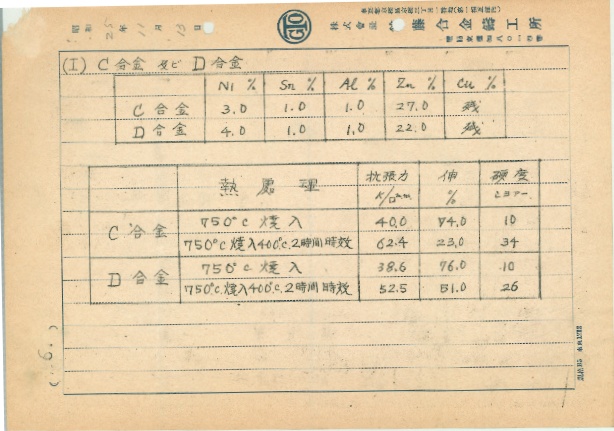 昭和 25年 11月 13日
GTO
株式會社 藤合金鑄工所
(I) C合金 及ビ D合金
Ni % Sn % Al % Zn % Cu %
C 合金 3.0 1.0 1.0 27.0 残
D 合金 4.0 1.0 1.0 22.0 残
熱 處 理 抗張力 K/□mm 伸 % 硬度 ショアー
C 合金 750°C 焼入 40.0 74.0 10
750°C 焼入 400°C. 2時間時效 62.4 23.0 34
D 合金 750°C 焼入 38.6 76.0 10
750°C. 焼入 400°C. 2時間時效 52.5 51.0 26
( 6. )
規格B5